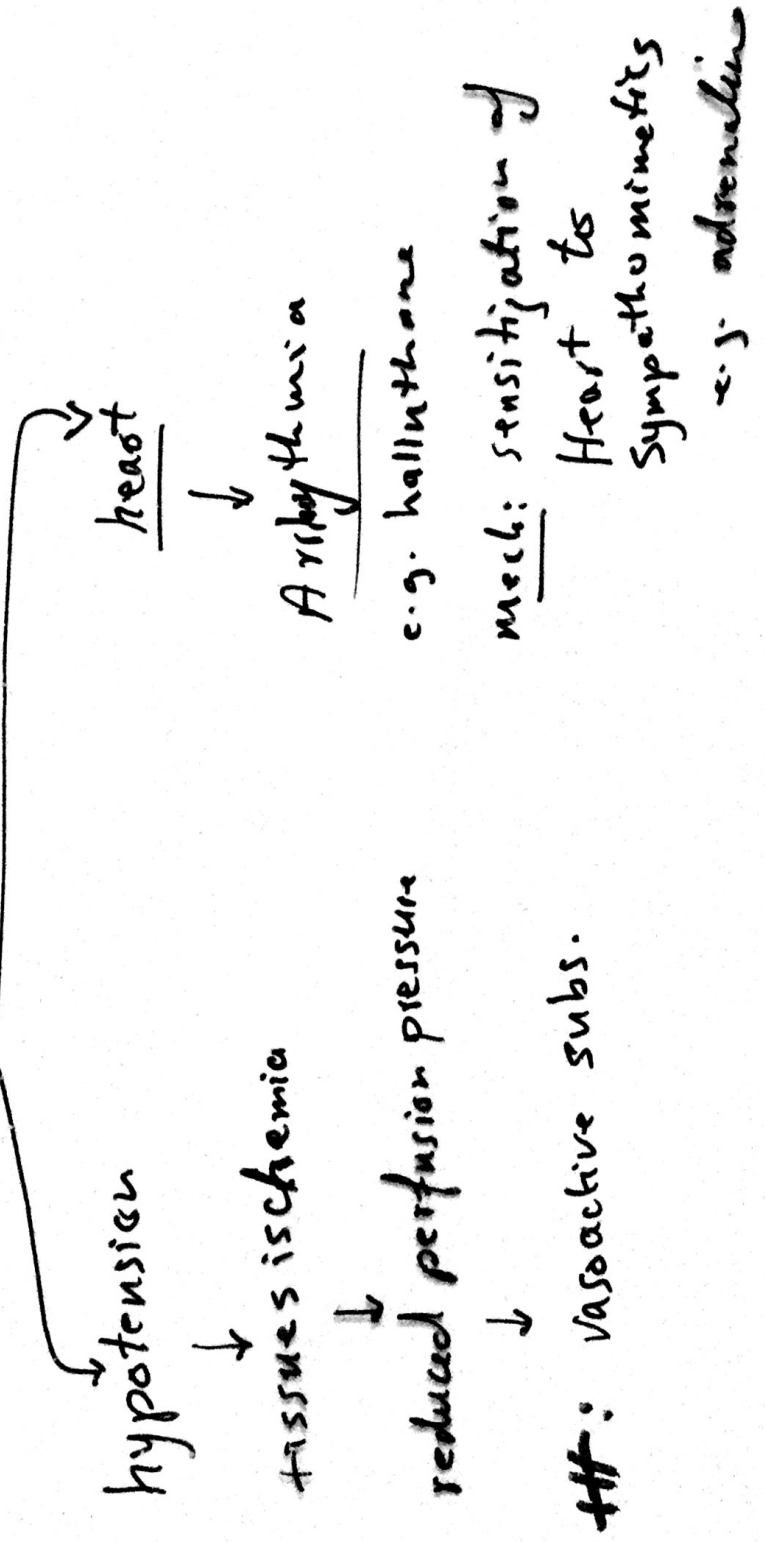 hypotension
↓
tissues ischemia
↓
reduced perfusion pressure
↓
ttt: vasoactive subs.
heart
↓
Arrhythmia
e.g. hallnthane
mech: sensitization of
Heart to
Sympathomimetics
e.g. adrenalin